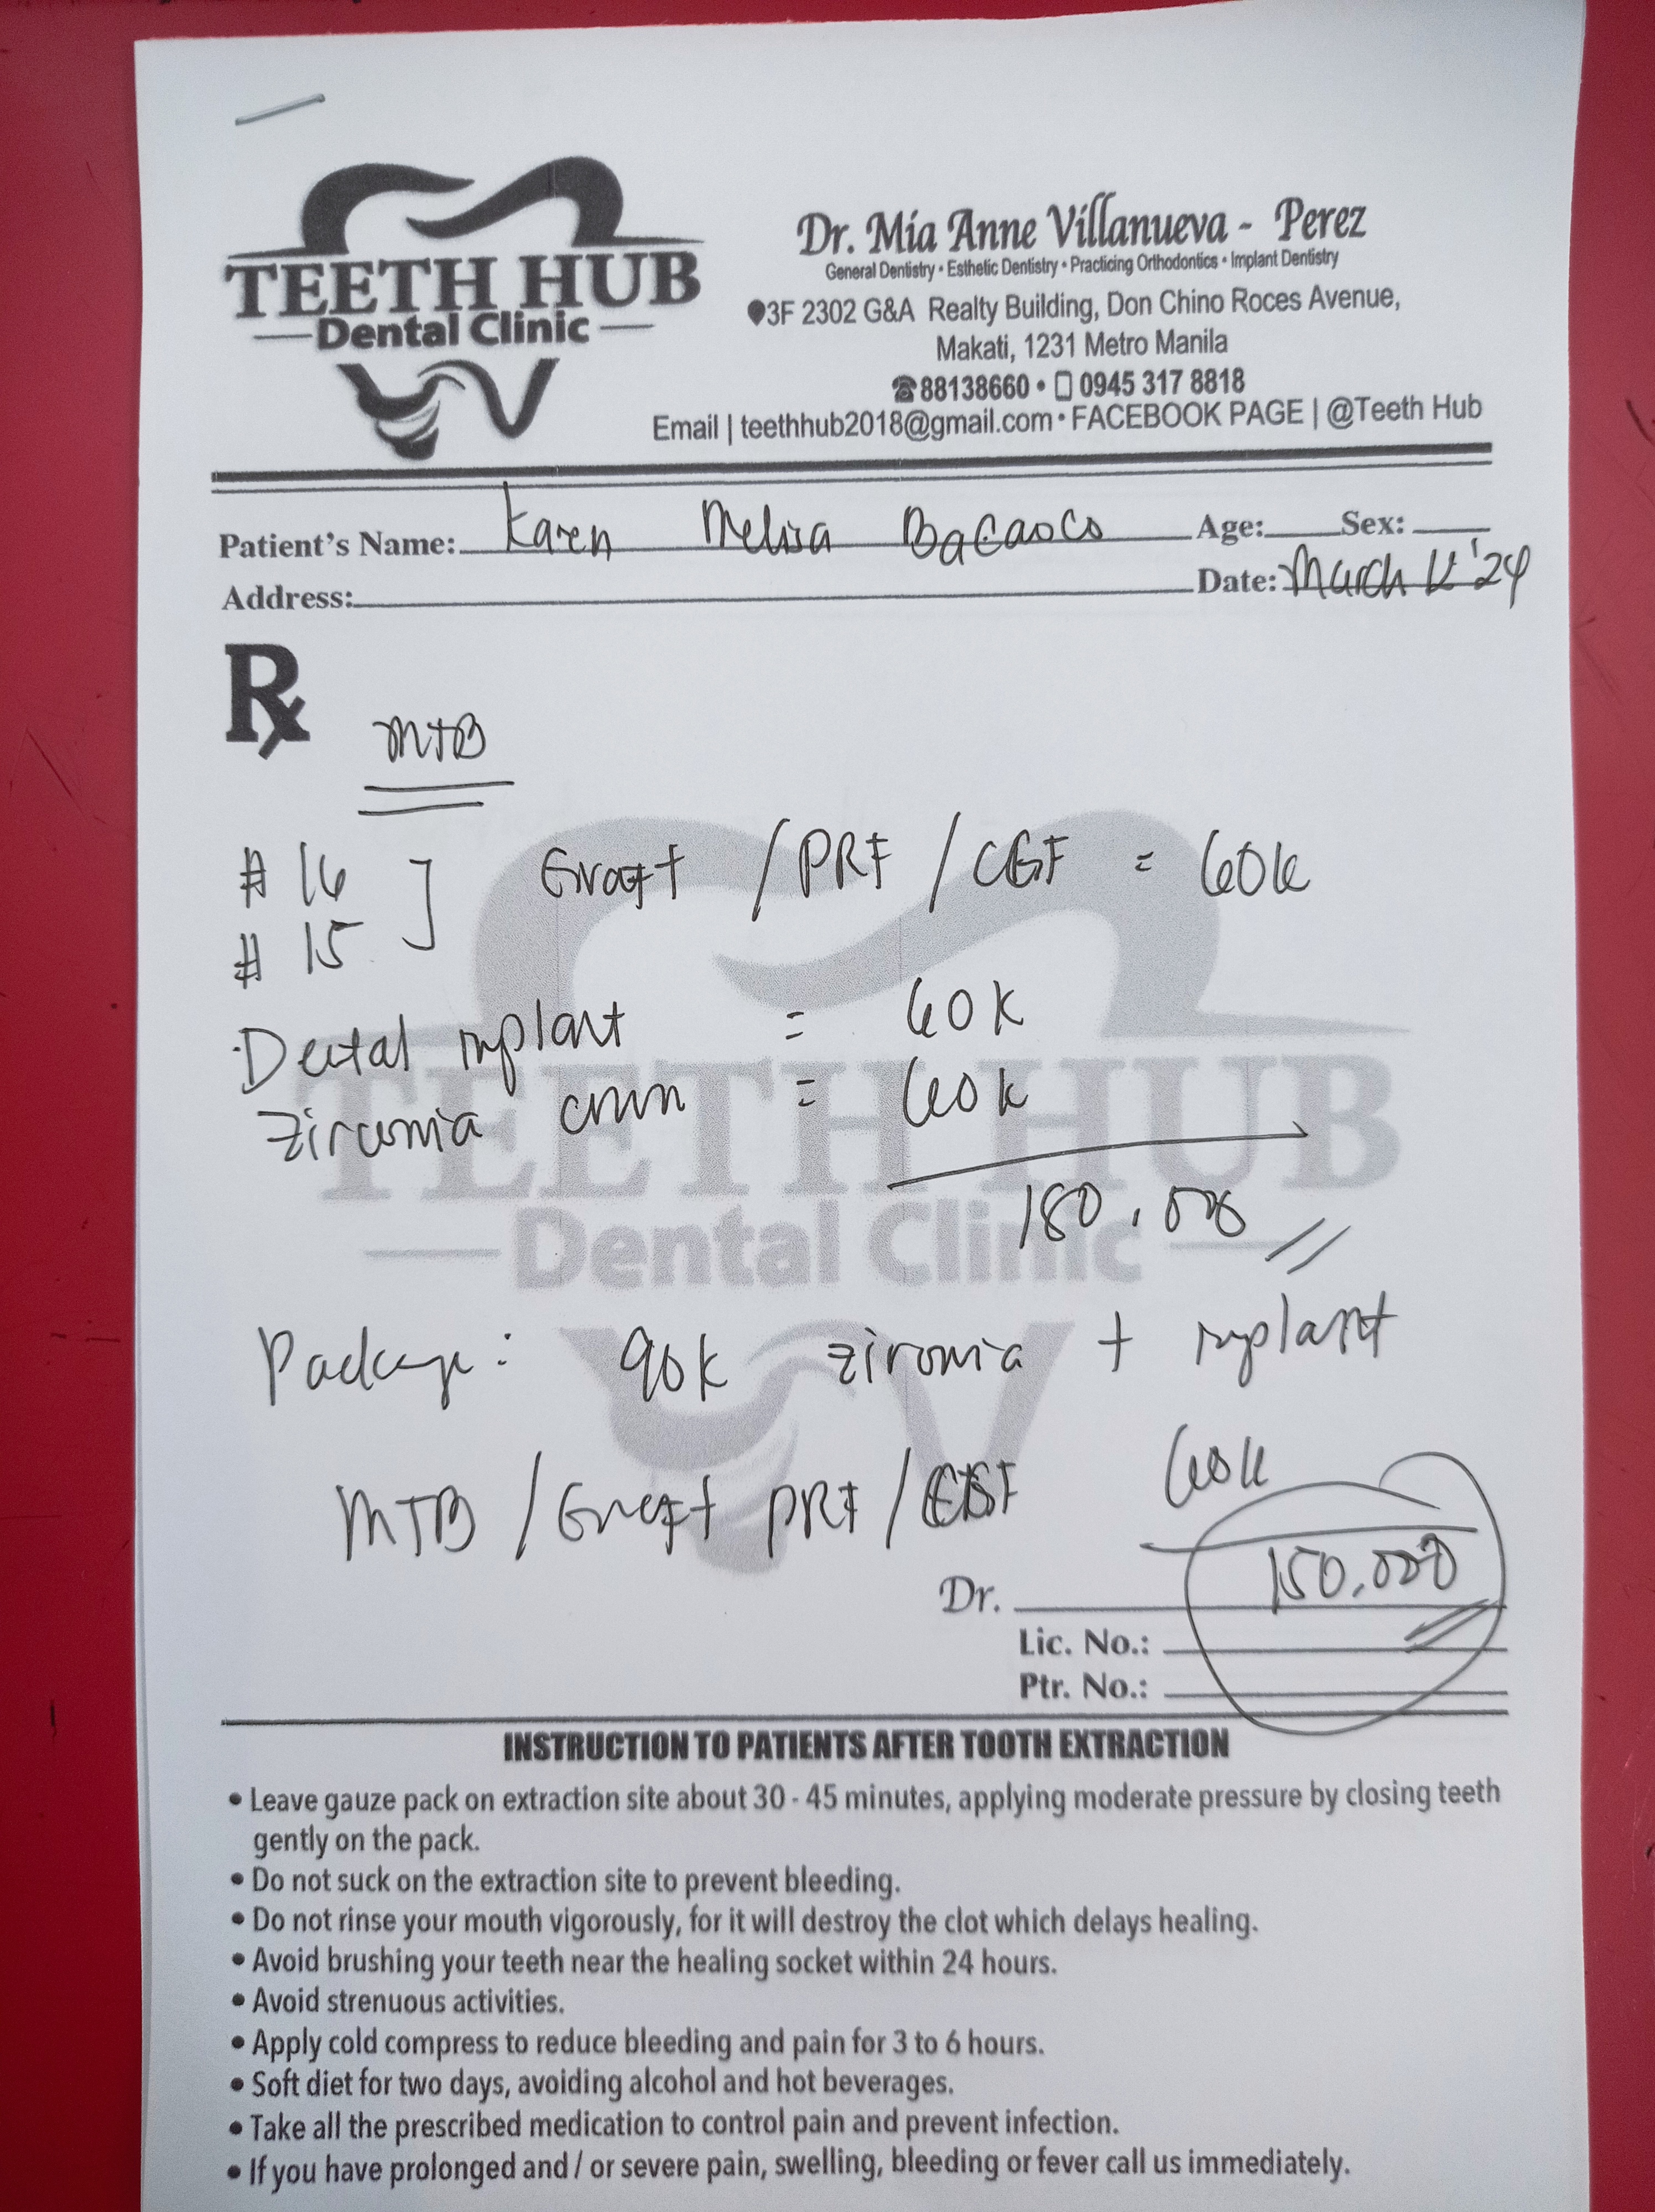 TEETH HUB
Dental Clinic
Dr. Mia Anne Villanueva - Perez
General Dentistry • Esthetic Dentistry • Practicing Orthodontics • Implant Dentistry
3F 2302 G&A Realty Building, Don Chino Roces Avenue,
Makati, 1231 Metro Manila
88138660 • 0945 317 8818
Email | teethhub2018@gmail.com • FACEBOOK PAGE | @Teeth Hub
Patient's Name: Karen Melisa Age: Sex:
Address: Date: March 12 '24
Rx
MTB
# 16 ] Graft / PRF / CGF = 60k
# 15
Dental implant = 60k
zirconia crown = 60k
180,000
Package: 90k zirconia + implant
MTB / Graft PRF / CGF 60k
150,000
Dr.
Lic. No.:
Ptr. No.:
TEETH HUB
Dental Clinic
INSTRUCTION TO PATIENTS AFTER TOOTH EXTRACTION
• Leave gauze pack on extraction site about 30 - 45 minutes, applying moderate pressure by closing teeth
gently on the pack.
• Do not suck on the extraction site to prevent bleeding.
• Do not rinse your mouth vigorously, for it will destroy the clot which delays healing.
• Avoid brushing your teeth near the healing socket within 24 hours.
• Avoid strenuous activities.
• Apply cold compress to reduce bleeding and pain for 3 to 6 hours.
• Soft diet for two days, avoiding alcohol and hot beverages.
• Take all the prescribed medication to control pain and prevent infection.
• If you have prolonged and / or severe pain, swelling, bleeding or fever call us immediately.